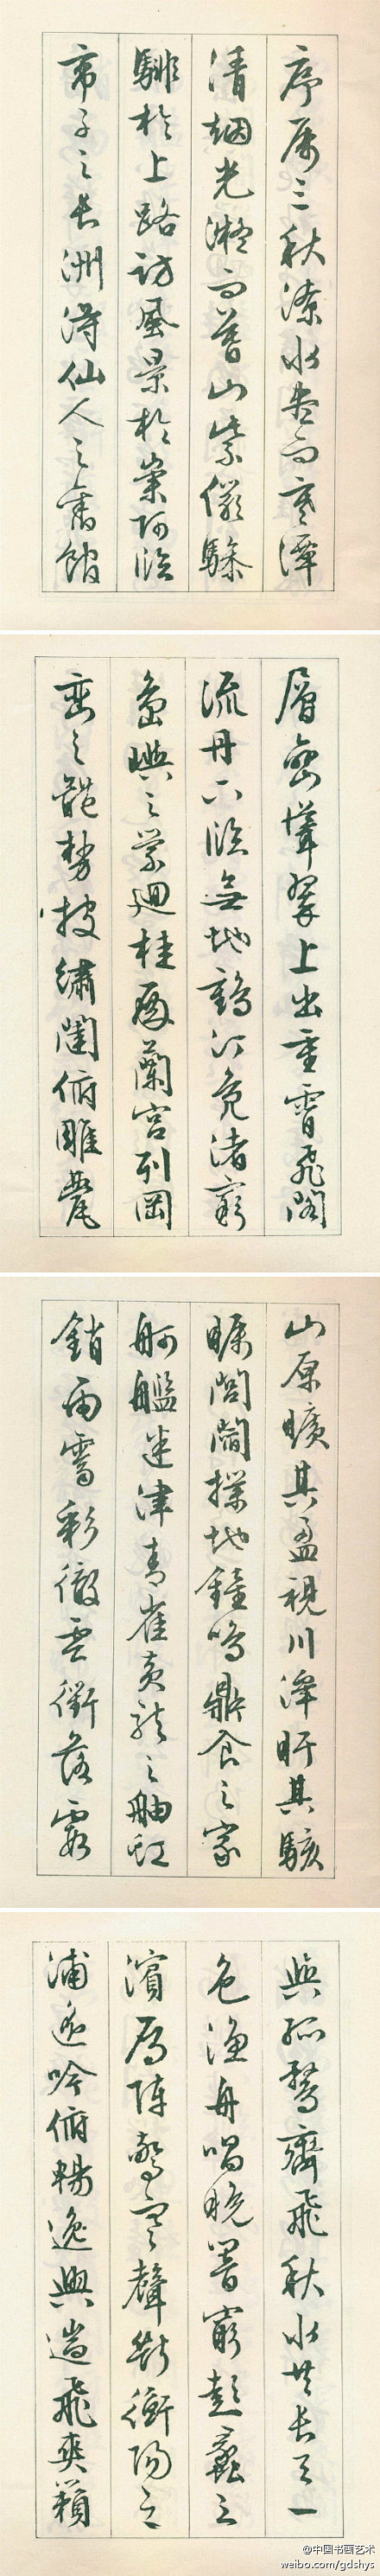 序属三秋潦水尽而寒潭
清烟光凝而暮山紫俨骖
騑于上路访风景于崇阿临
帝子之长洲得仙人之旧馆
层峦耸翠上出重霄飞阁
流丹下临无地鹤汀凫渚穷
岛屿之萦回桂殿兰宫列冈
峦之体势披绣闼俯雕甍
山原旷其盈视川泽盱其骇
瞩闾阎扑地钟鸣鼎食之家
舸舰迷津青雀黄龙之舳虹
销雨霁彩彻云衢落霞
与孤鹜齐飞秋水共长天一
色渔舟唱晚响穷彭蠡之
滨雁阵惊寒声断衡阳之
浦遥吟俯畅逸兴遄飞爽籁
@中国书画艺术
weibo.com/gdshys